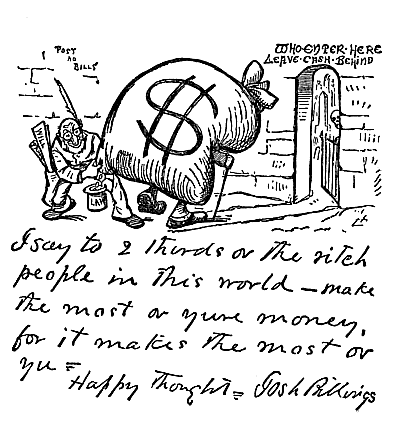 POST
NO
BILLS
WHO ENTER HERE
LEAVE CASH BEHIND
$
LAW
I say to 2 thirds ov the ritch
people in this world – make
the most ov yure money,
for it makes the most ov
yu =
Happy Thought = Josh Billings